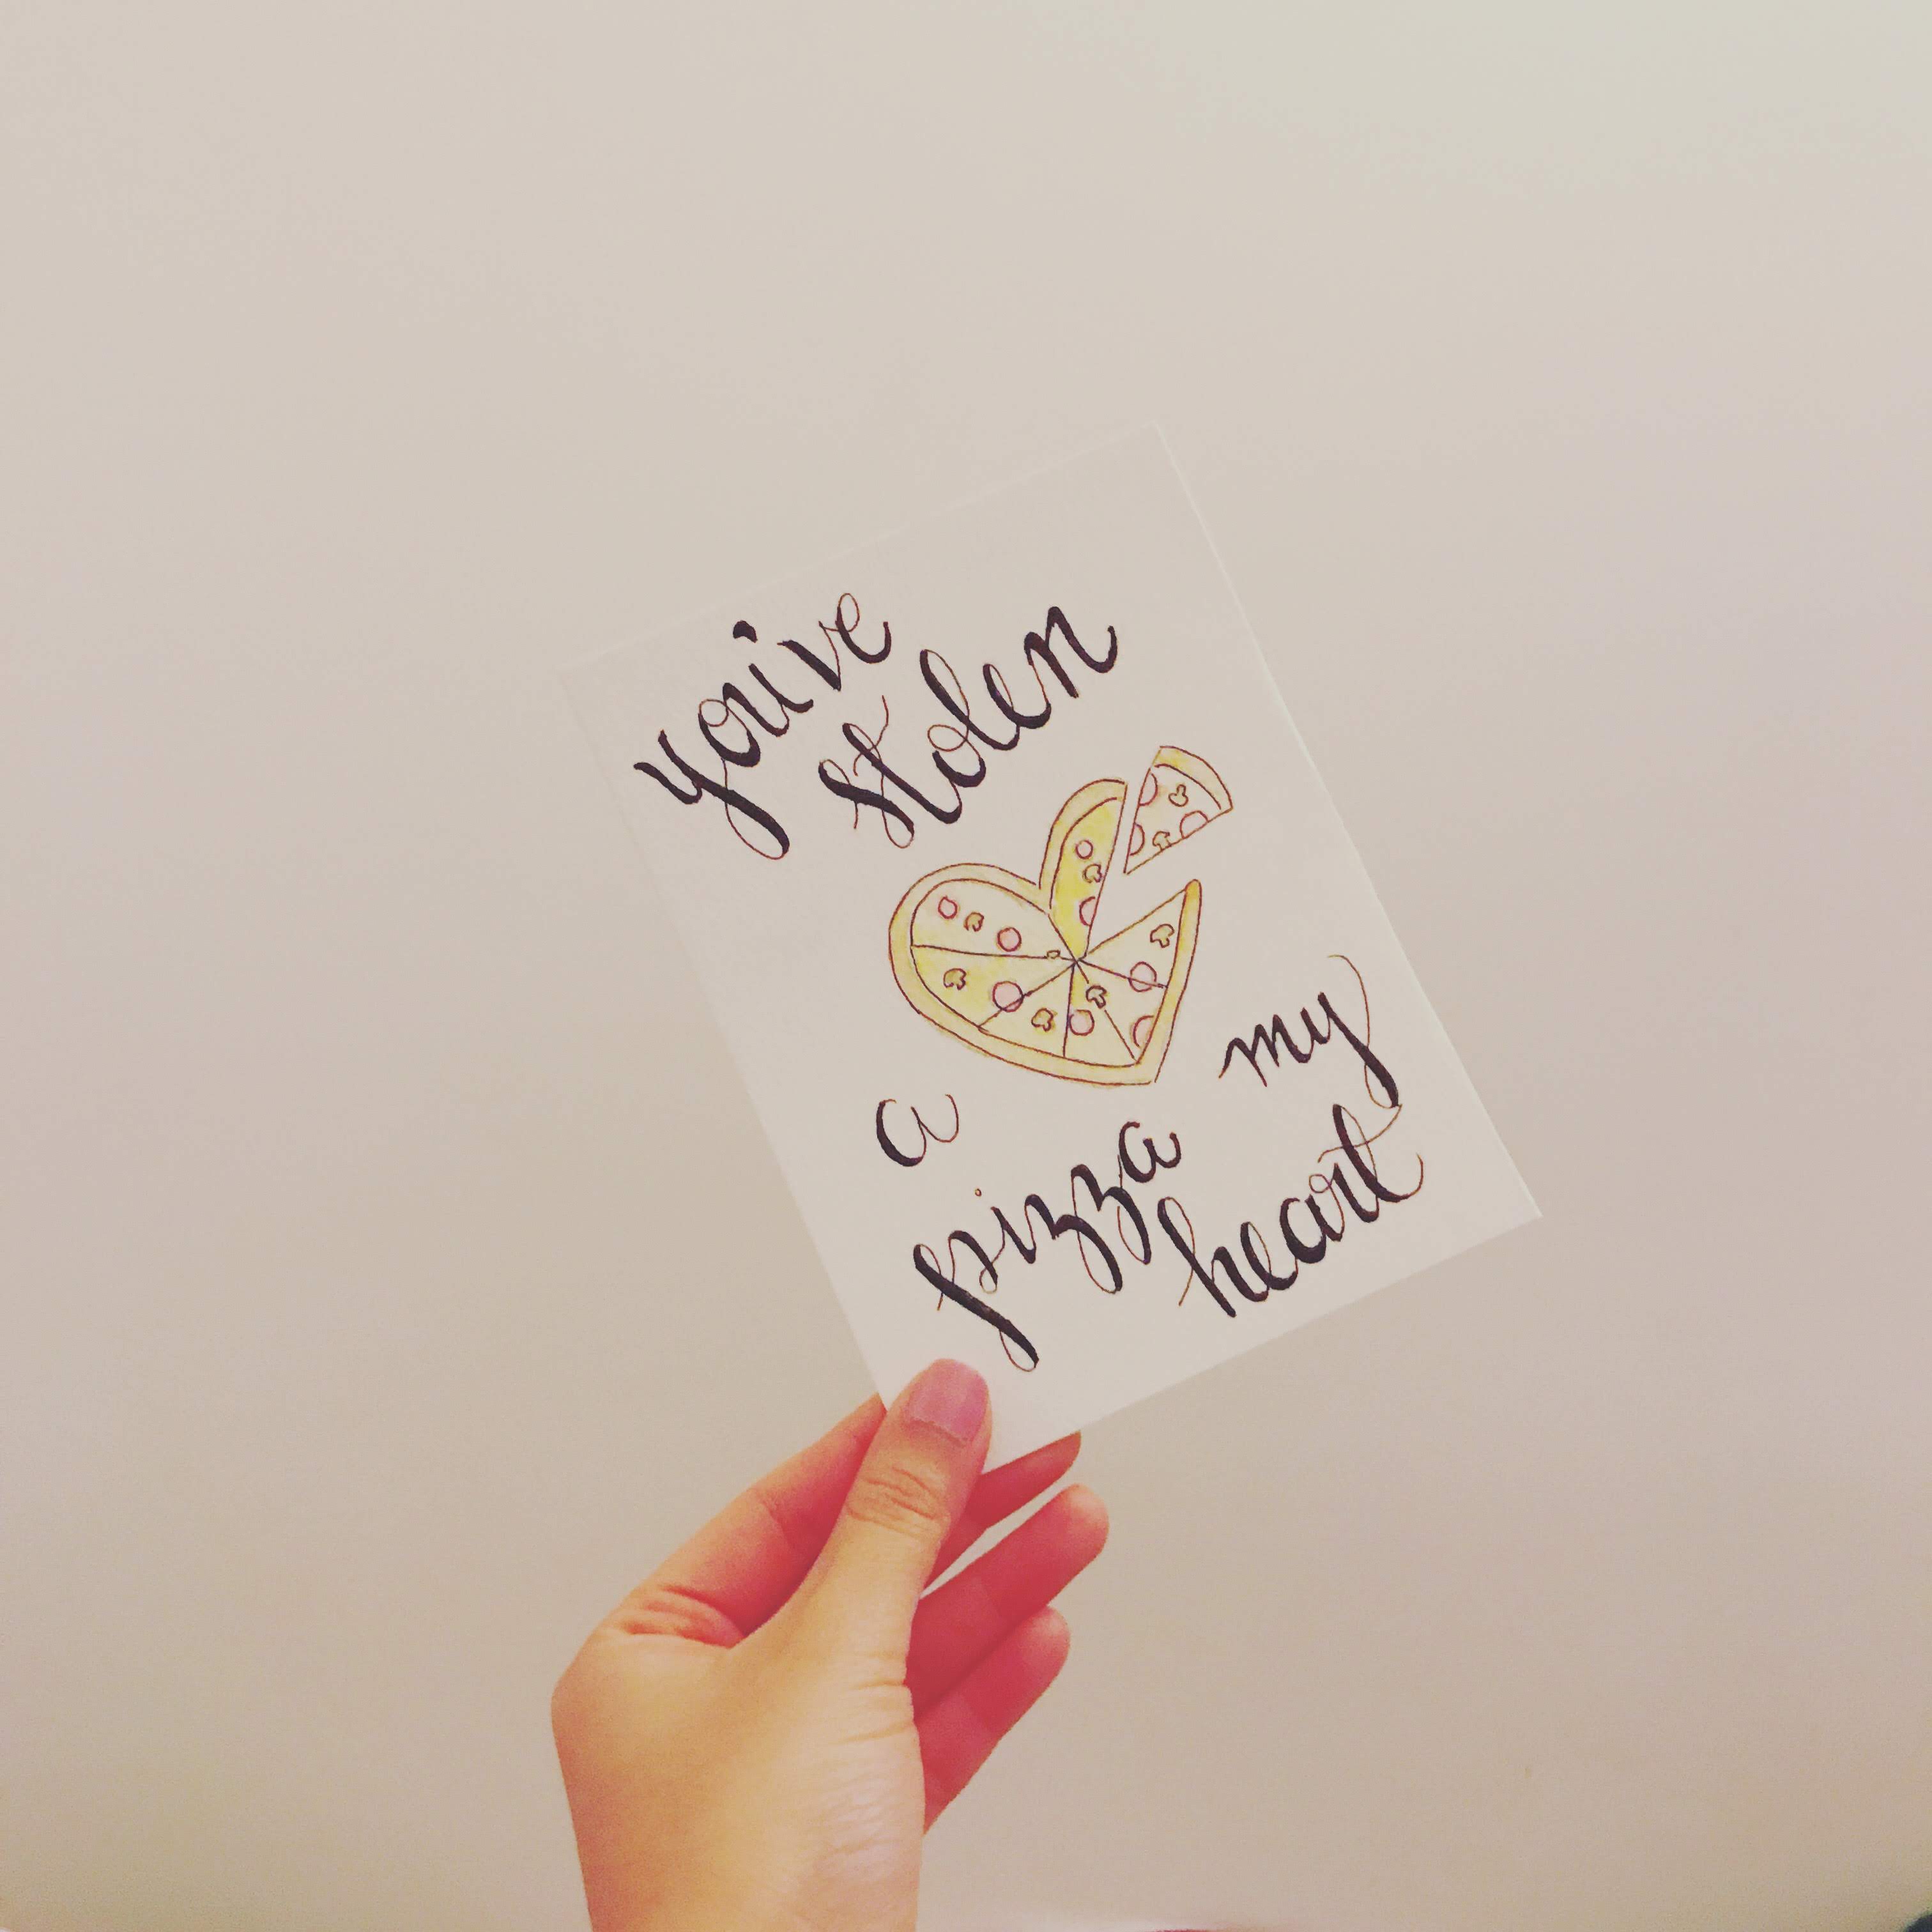 you've
stolen
a my
pizza
heart